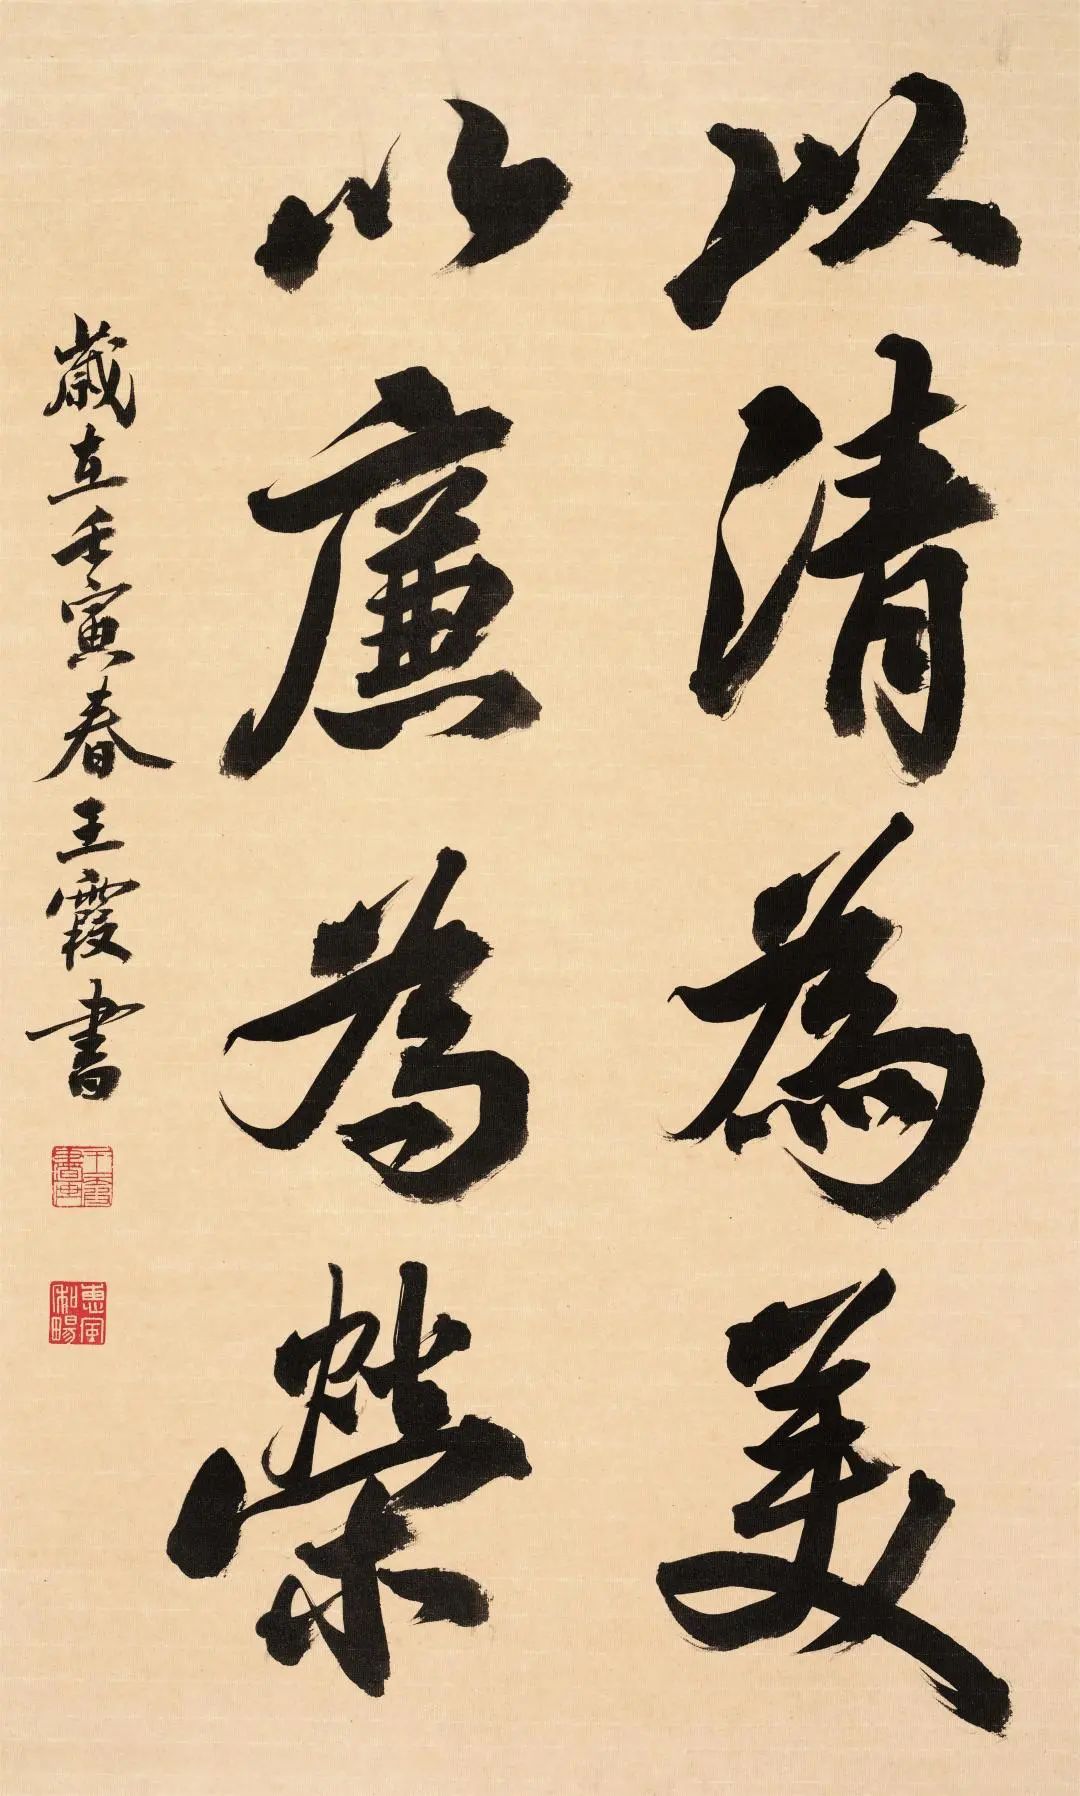 以清為美
以廉為榮
歲在壬寅春王霞書
惠風和暢